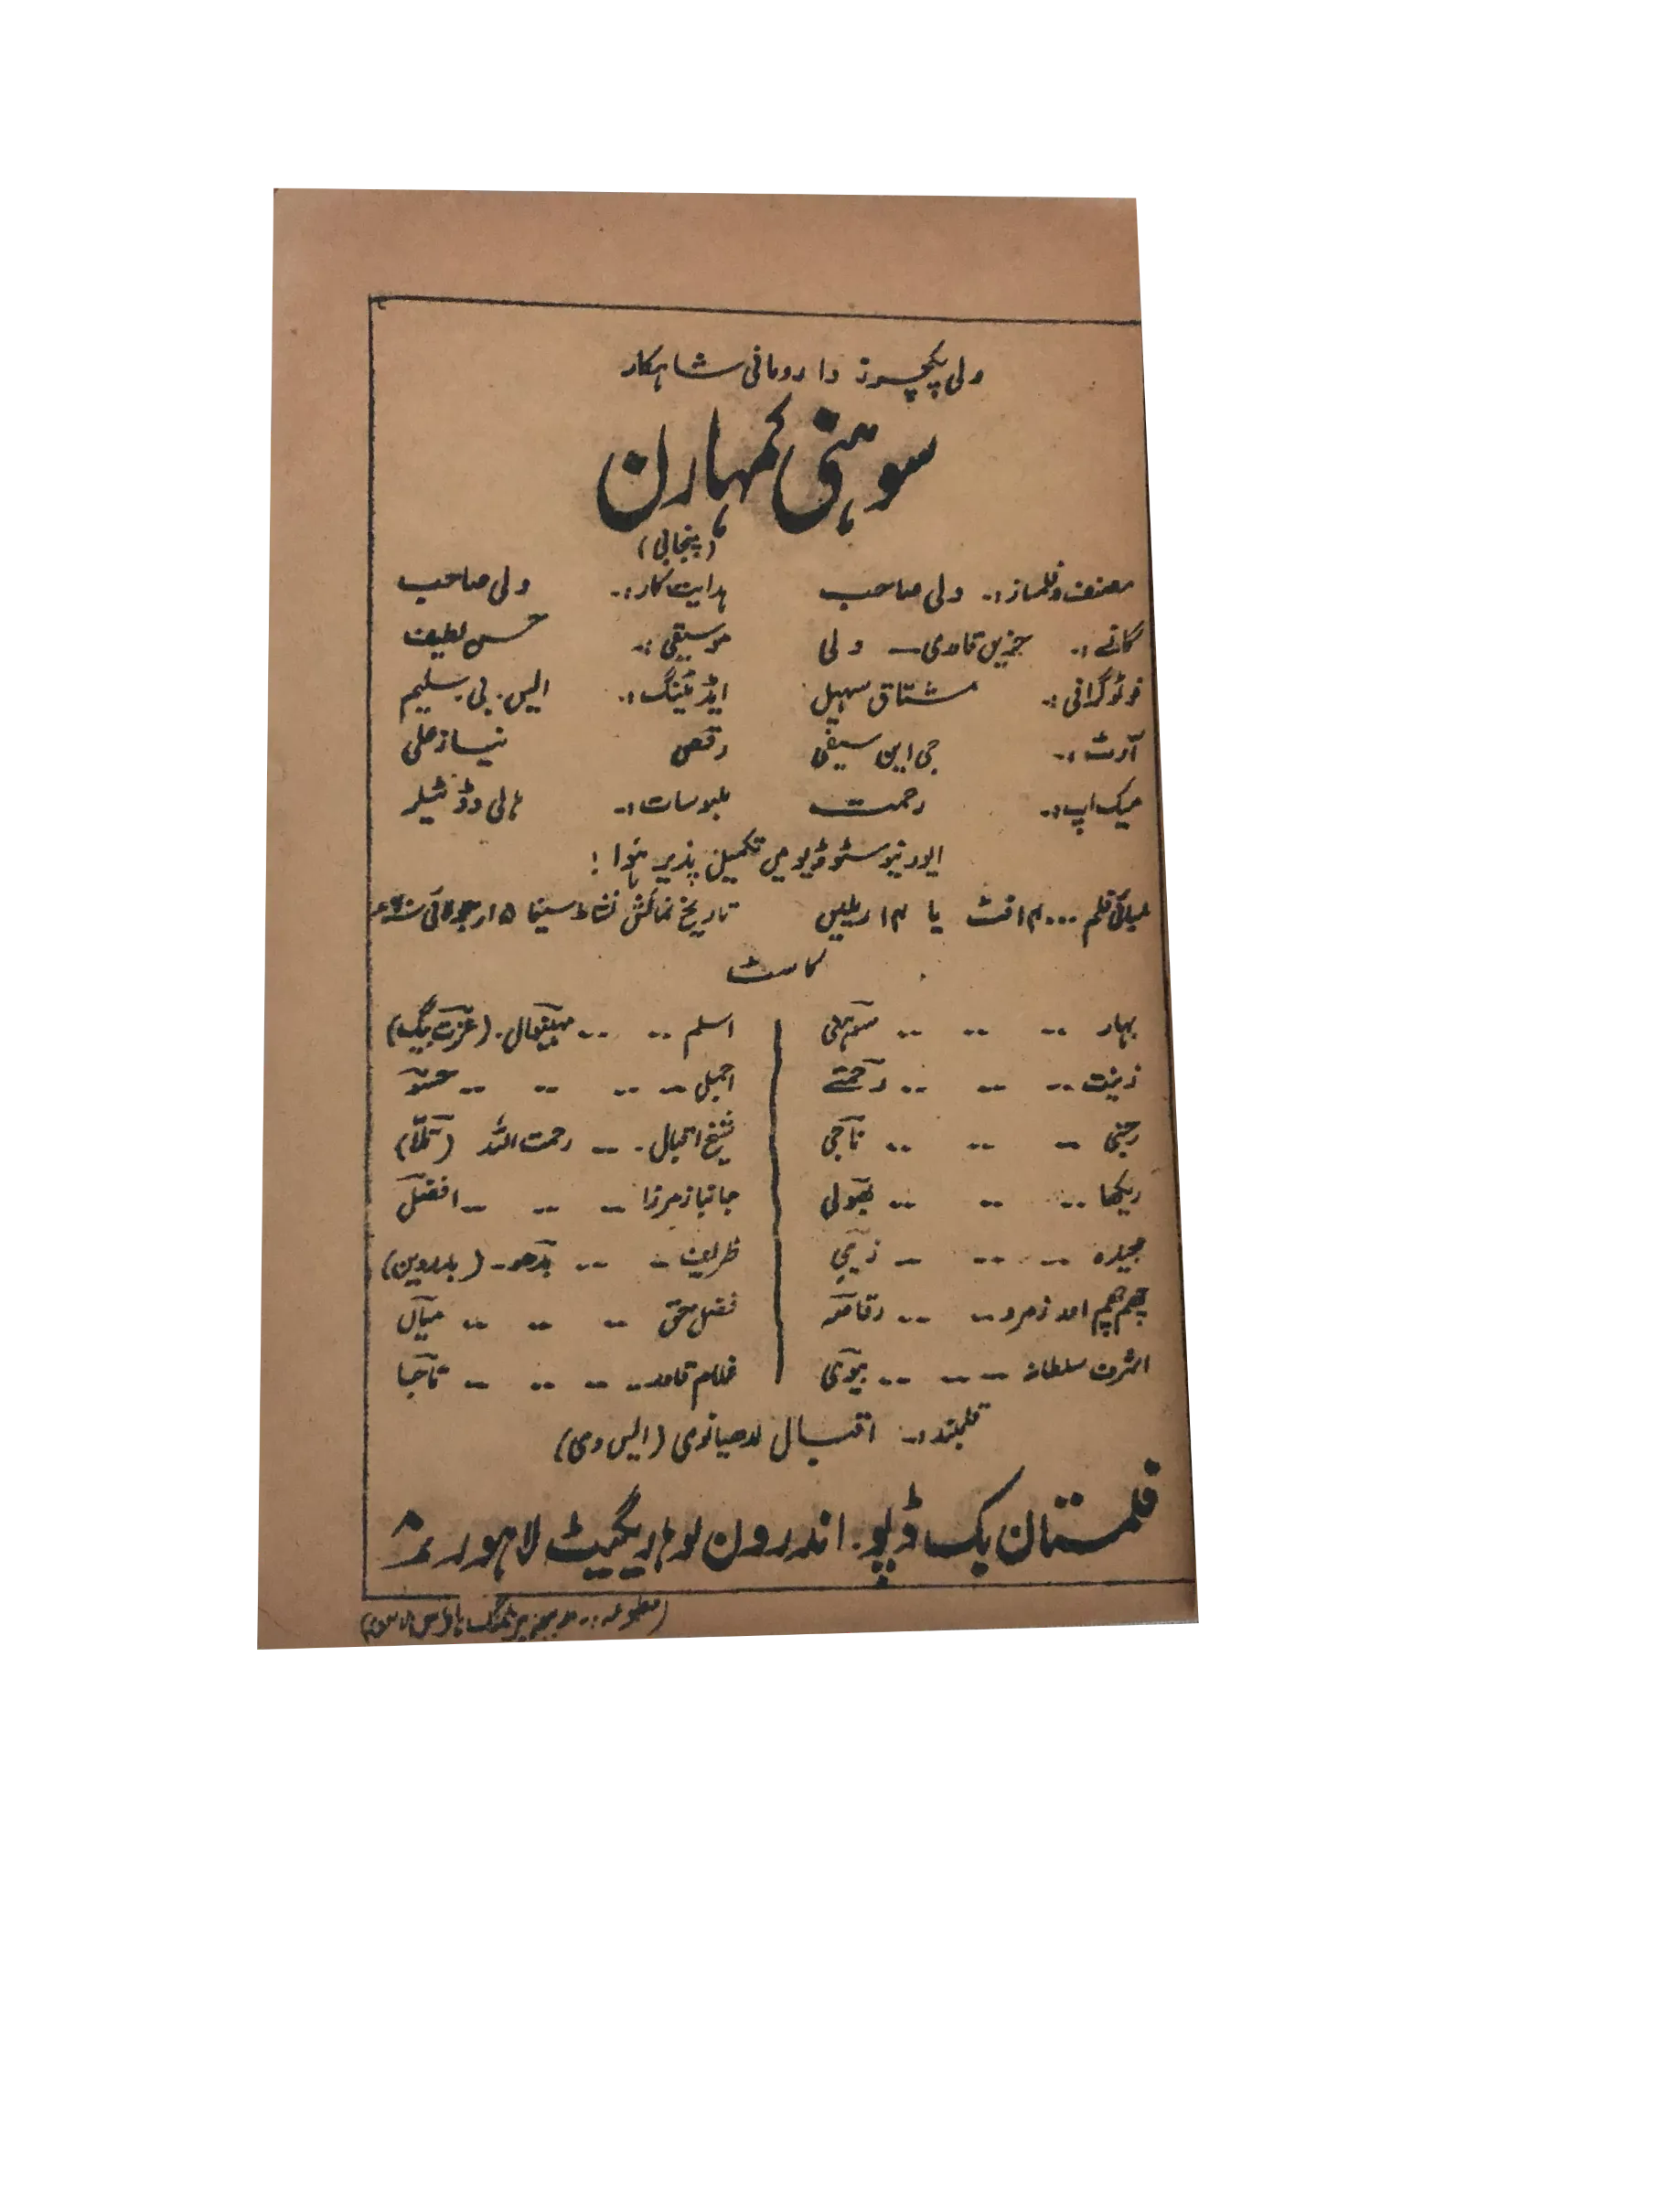 ولی پکچرز دا رومانی شاہکار
سوہنی کمہارن
(پنجابی)
مصنف و فلمساز:۔ ولی صاحب ہدایت کار:۔ ولی صاحب
گانے:۔ حزیں قادری ۔ ولی موسیقی:۔ حسن لطیف
فوٹوگرافی:۔ مشتاق سہیل ایڈیٹنگ:۔ ایس۔ بی۔ سلیم
آرٹ:۔ جی این سیفی رقص نیاز علی
میک اپ:۔ رحمت ملبوسات:۔ ہالی وڈ ٹیلر
ایورنیو سٹوڈیو میں تکمیل پذیر ہؤا!
لمبائی فلم ۱۴۰۰۰ فٹ یا ۱۴ ریلیں تاریخ نمائش نشاط سینما ۱۵ر جولائی ۶۰ء
کاسٹ
بہار .. .. .. سوہنی اسلم .. .. مہینوال۔ (عزت بیگ)
زینت .. .. .. رحمتے اجمل .. .. .. ..
رجنی .. .. .. تاجی شیخ اقبال .. رحمت اللہ (تلا)
ریکھا .. .. .. بھولی جانباز مرزا .. .. .. افضل
مجیدہ .. .. .. زیبی ظریف .. .. بدھو۔ (بدردین)
چھم چھم اور زمرد .. .. رقاصہ فضل حق .. .. .. میاں
اشرف سلطانہ .. .. .. بیوی غلام قادر .. .. .. تاجا
قلمبند:۔ اقبال لدھیانوی (ایس وی)
فلمستان بک ڈپو۔ اندرون لوہاریگیٹ لاہور نمبر ۸
(مطبوعہ:۔ پرنٹنگ ہاؤس لاہور)